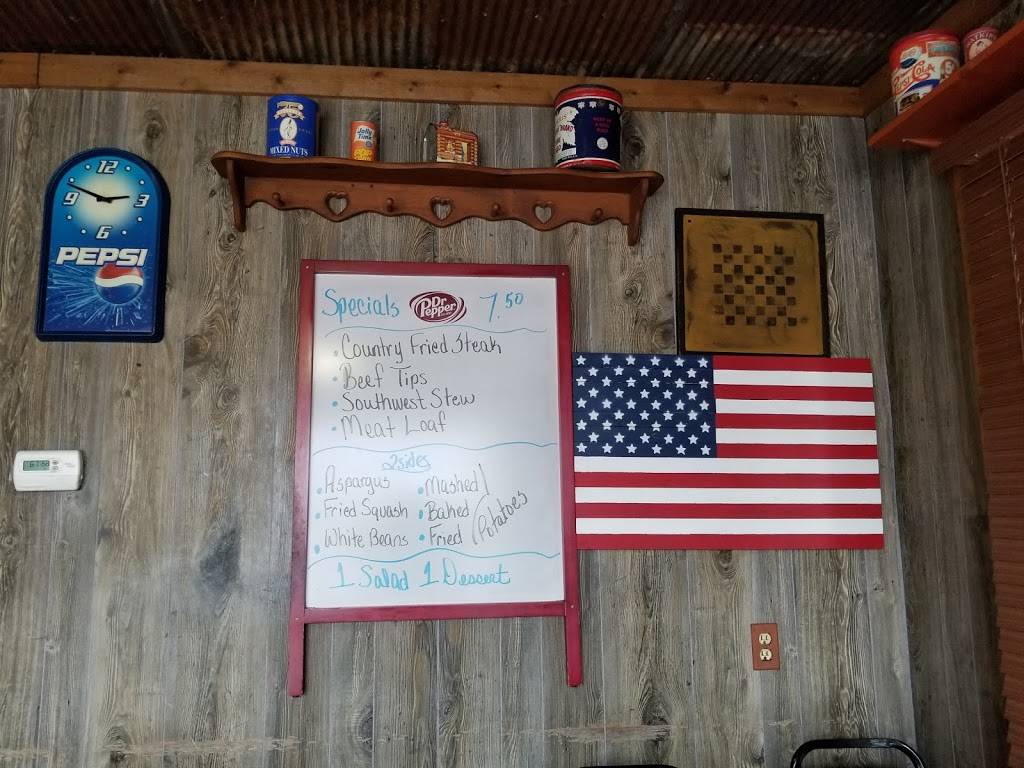 MIXED NUTS
Jolly
Time
PEPSI-COLA
12
9
3
6
PEPSI
Specials Dr Pepper 7.50
Country Fried Steak
Beef Tips
Southwest Stew
Meat Loaf
2 sides
Aspargus
Fried Squash
White Beans
Mashed
Baked
Fried
Potatoes
1 Salad 1 Dessert